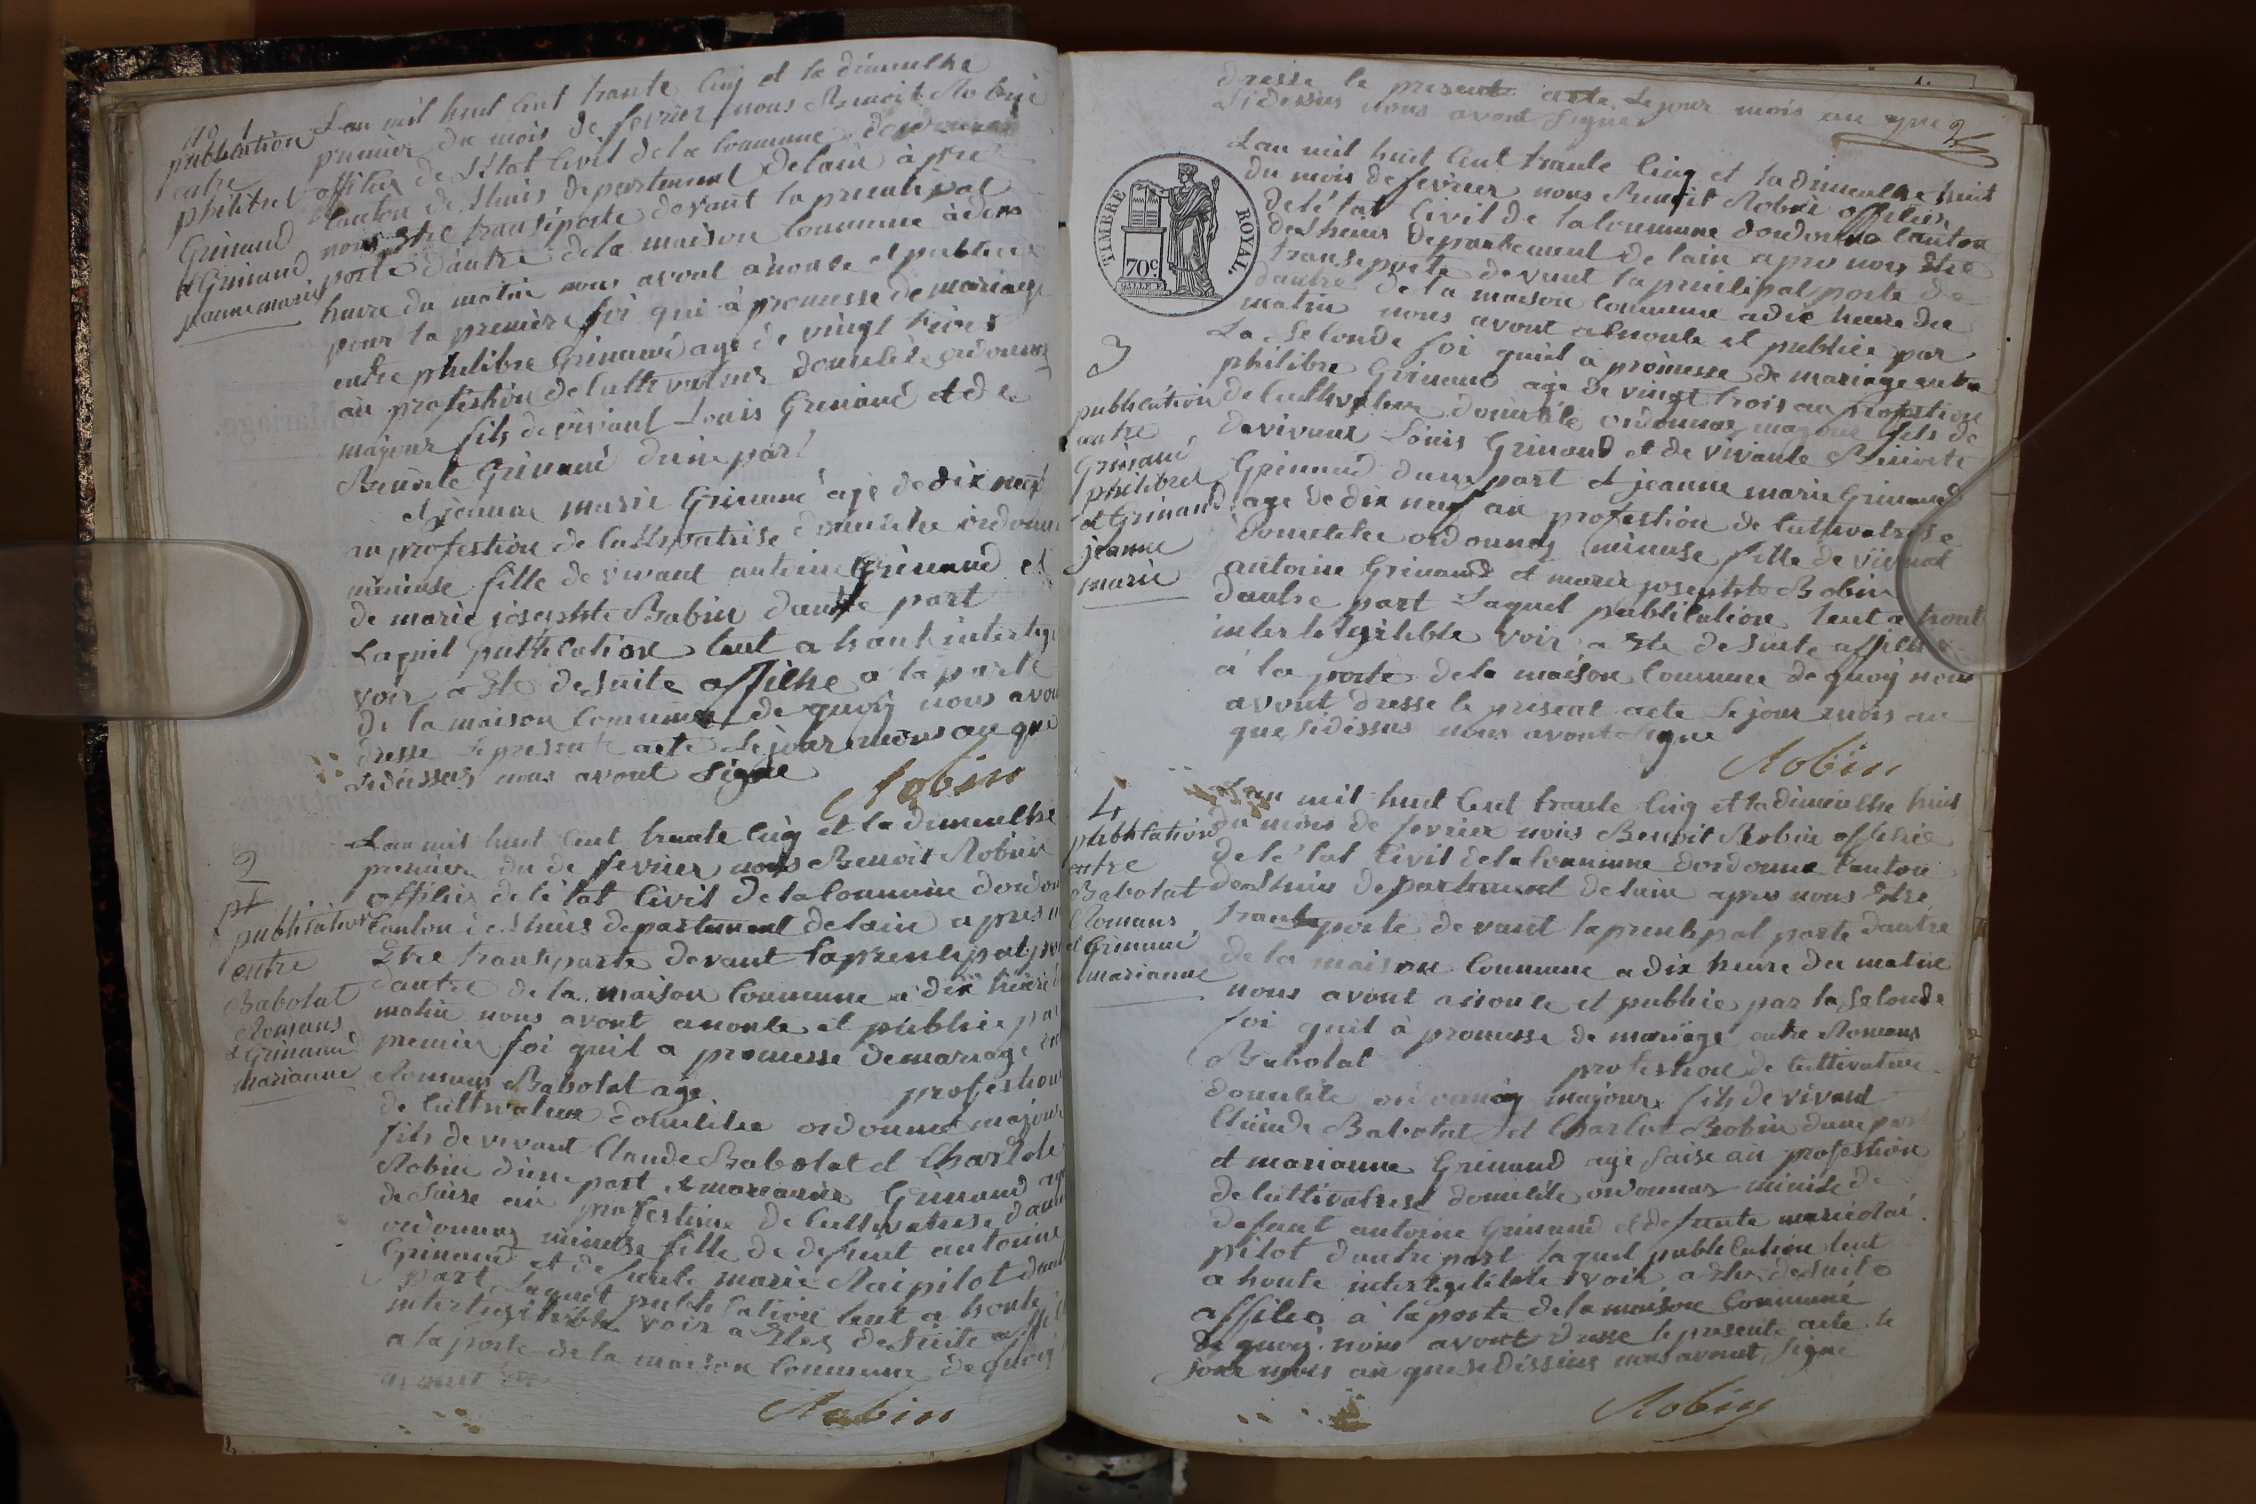 no 1
publication
entre
philibel
Grinand
et Grinand
jeanne marie
Lan mil huit cent trante cinq et la dimenche
premier du mois de fevrier nous Benoit Robin
officier de letat Civil de la Commune
Canton de Lhuis departement delain à pre
nous etre transporte devant la prencipal
porte dantre dela maison Commune à dix
heure du matin nous avont anonce et publier
pour la première foi qui à promesse de mariage
entre philibre Grinand age de vingt trois
an profestion de Cultivateur domicile ordonnaz
majeur fils de vivant Louis Grinand et de
Benoite Grinand dune part
et jeanne marie Grinand agé de dix neuf
an profestion de Cultivatrise domicilee ordonna
mineuse fille de vivant antoine Grinand et
de marie josephte Babin dautre part
Laquel publication tent a haut interlege
voir a Ete de suite affiche a la porte
de la maison Commune de quoy nous avon
dresse le present acte le jour mois an que
sidessus nous avont signe
Robin
2
pt
publication
entre
Babolat
Romans
et Grinand
marianne
Lan mil huit cent trante cinq et la dimenche
premier du de fevrier nous Benoit Robin
officier de létat Civil de la Commune dordon
Canton de Lhuis departement delain apres n
Etre transporte devant la prencipal por
dantre de la maison Commune a dix heure
matin nous avont anonce et publie par
premier foi quil a promesse de mariage en
Romans Babolat age profestion
de Cultivateur domicilee ordonnaz majeur
fils de vivant Claude Babolat et Charlote
Robin dune part et marianne Grinand age
de saise an profestion de Cultivatrise
ordonnaz mineuse fille de defunt antoine
Grinand et defunte marie Claipilot daut
part Laquel publication tent a honte
interlegilible voir a Etez de suite affi
a la porte de la maison Commune de quoy
avont
Robin
dresse le present acte Le jour mois an que
sidessus nous avont signe
2
TIMBRE ROYAL.
70c
3
publication
entre
Grinand
philibel
et Grinand
jeanne
marie
Lan mil huit cent trante cinq et la dimenche huit
du mois de fevrier nous Benoit Robin officier
de létat Civil de la Commune dordonna Canton
de Lhuis departement de lain apres nous etre
transporte devant la principal porte de
dantre de la maison Commune a dix heure du
matin nous avont anonce et publice par
La seconde foi quil à promesse de mariage entre
philibre Grinand age de vingt trois an profestion
de Cultivateur domicile ordonnaz majeur fils de
de vivant Louis Grinand et de vivante Benoite
Grinand dune part et jeanne marie Grinand
age de dix neuf an profestion de Cultivatrise
domicilee ordonnaz mineuse fille de vivant
antoine Grinand et marie josephte Bobin
dautre part Laquel publication tent a hont
interlegilible voir a Ete de suite affiche
à la porte de la maison Commune de quoy nous
avont dresse le present acte le jour mois an
que sidissus nous avont signe
Robin
4
publication
entre
Babolat
Romans
et Grinand
marianne
Lan mil huit cent trante cinq et la dimenche huit
du mois de fevrier nous Benoit Robin officie
de létat Civil de la Commune dordonna Canton
de Lhuis departement de lain apres nous Etre
transporte devant la prencipal porte dantre
de la maison Commune a dix heure du matin
nous avont anonce et publie par la seconde
foi quil à promesse de mariage entre Romans
Babolat profestion de Cultivateur
domicile ordonnaz majeur fils de vivant
Claude Babolat et Charlote Robin dune par
et marianne Grinand age saise an profestion
de Cultivatrise domicile ordonnaz minise de
defunt antoine Grinand et defunte marieclai
pilot dautre part laquel publication tent
a honte interlegilible voir a Ete de suite
affile à la porte de la maison Commune
de quoy nous avont dresse le presente acte le
jour mois an que sidessus nous avont signe
Robin